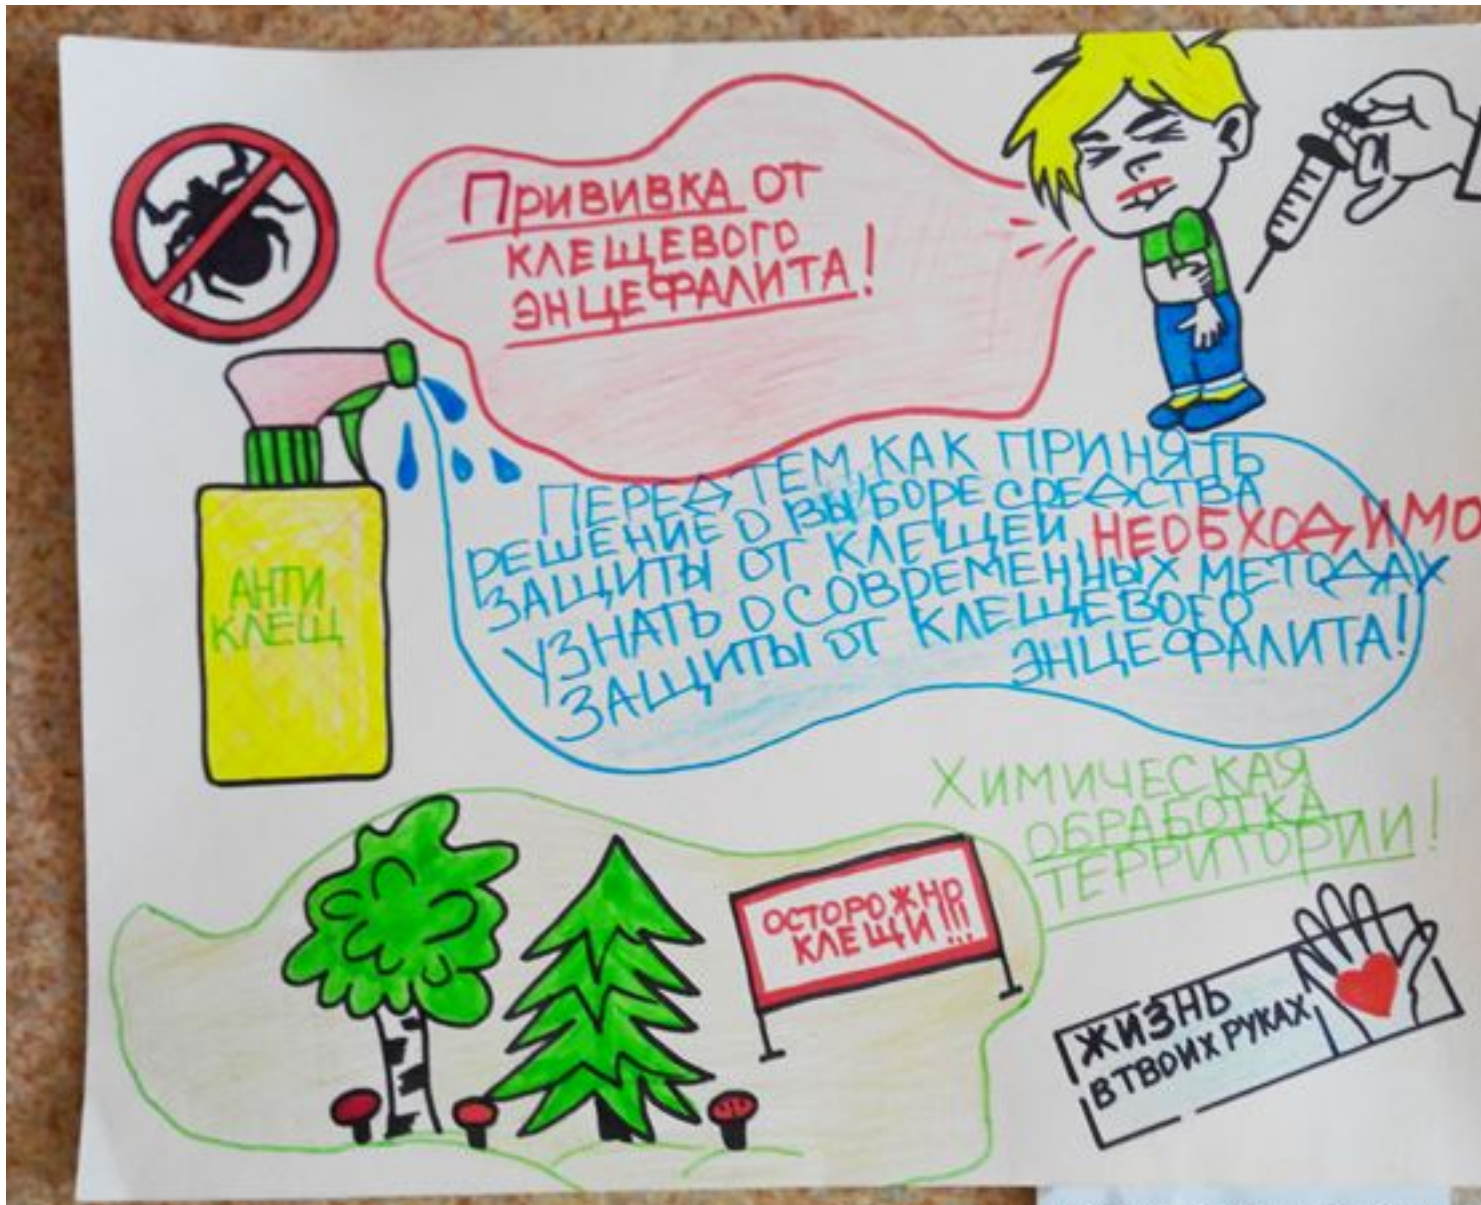 ПРИВИВКА ОТ
КЛЕЩЕВОГО
ЭНЦЕФАЛИТА!
ПЕРЕД ТЕМ, КАК ПРИНЯТЬ
РЕШЕНИЕ О ВЫБОРЕ СРЕДСТВА
ЗАЩИТЫ ОТ КЛЕЩЕЙ НЕОБХОДИМО
УЗНАТЬ О СОВРЕМЕННЫХ МЕТОДАХ
ЗАЩИТЫ ОТ КЛЕЩЕВОГО
ЭНЦЕФАЛИТА!
АНТИ
КЛЕЩ
ХИМИЧЕСКАЯ
ОБРАБОТКА
ТЕРРИТОРИИ!
ОСТОРОЖНО
КЛЕЩИ!!!
ЖИЗНЬ
В ТВОИХ РУКАХ